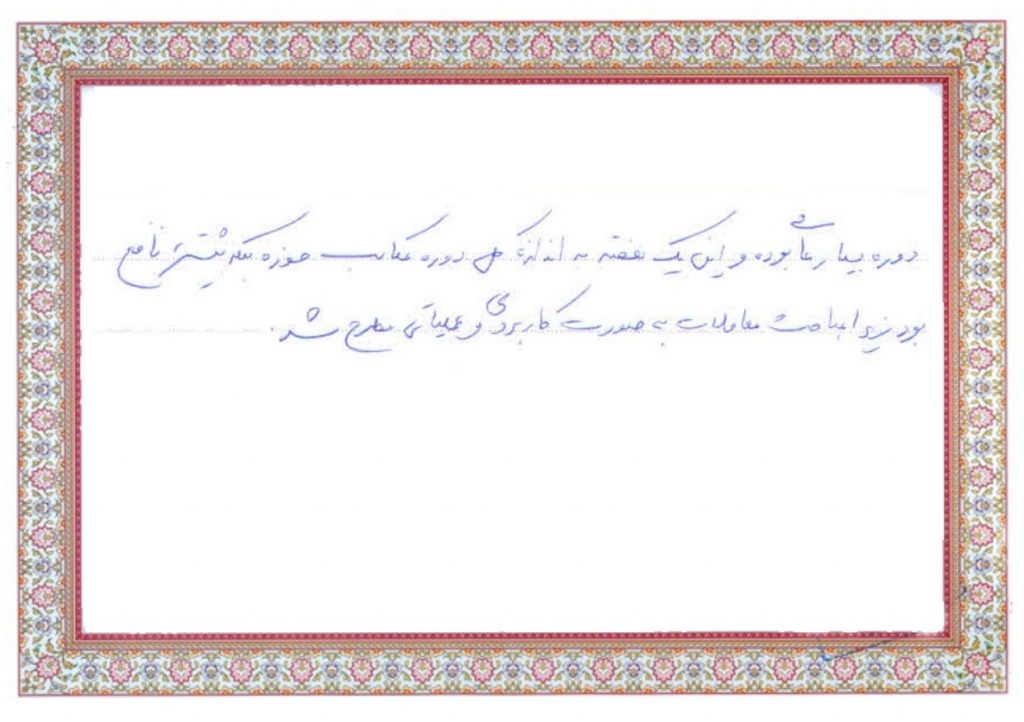 دوره بسیار عالی بوده و این یک هفته به اندازه کل دوره مکاسب حوزه بلکه بیشتر نافع
بود زیرا مباحث معاملات به صورت کاربردی و عملیاتی مطرح شد.